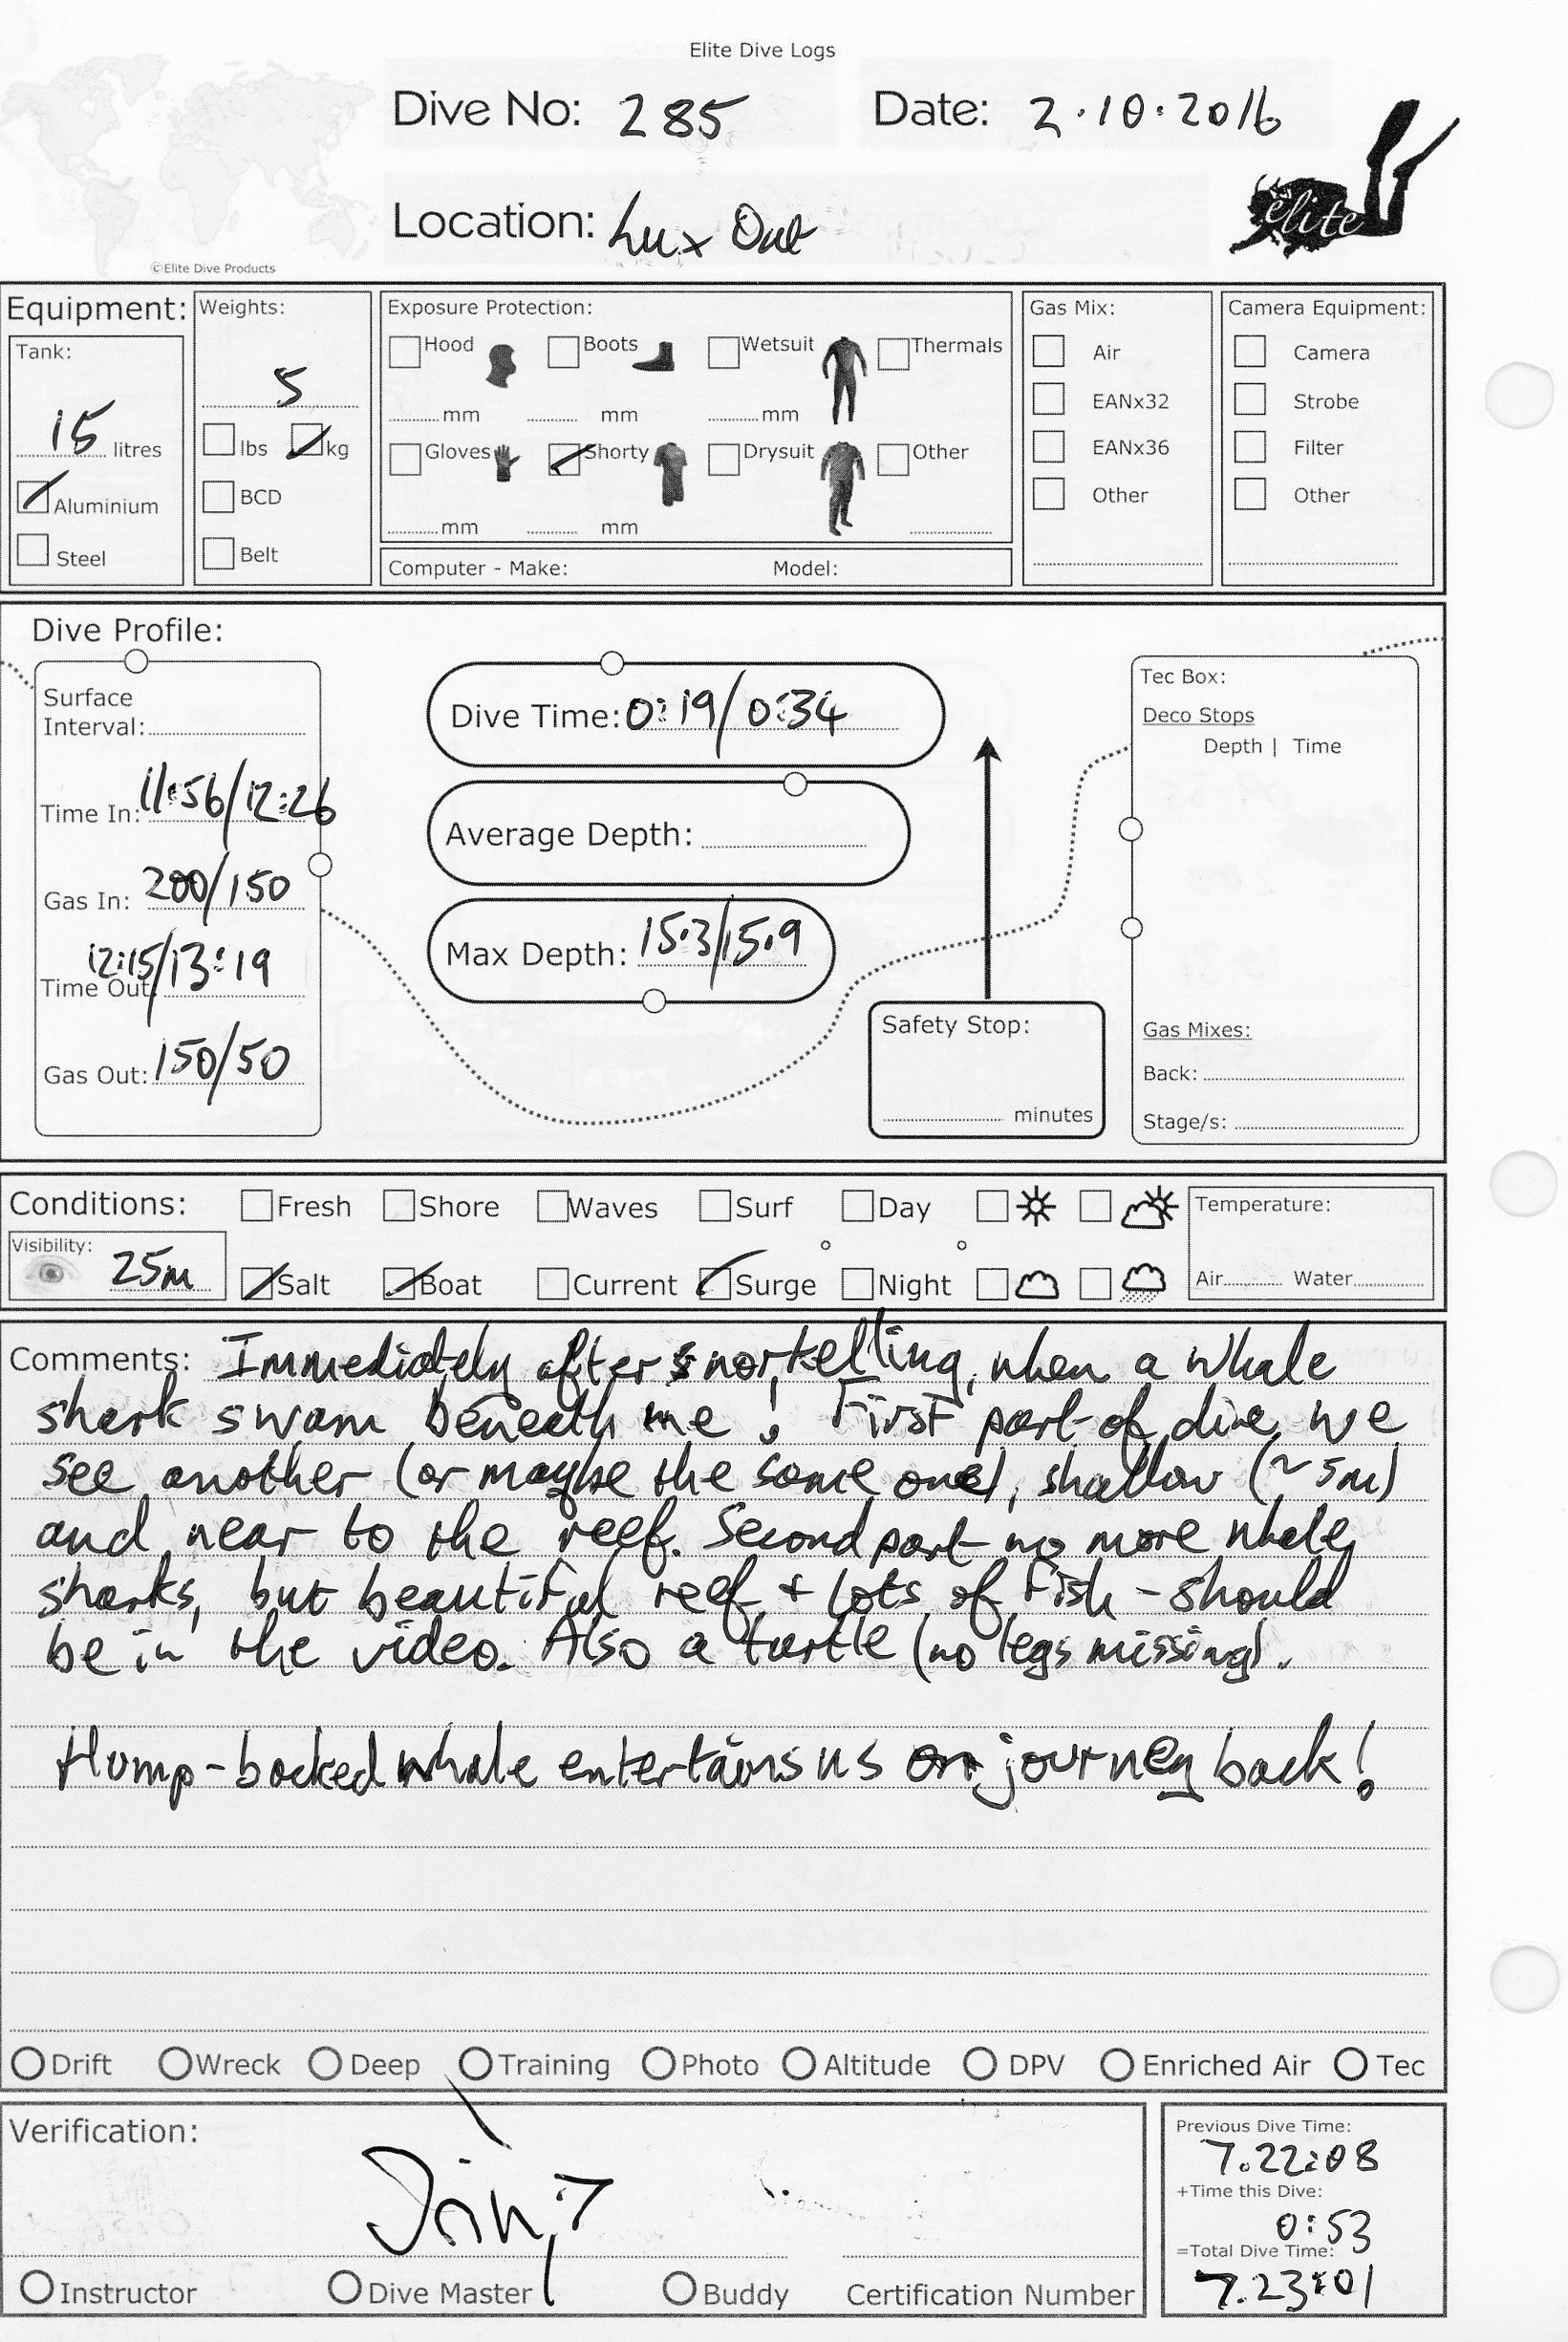 Elite Dive Logs
Dive No: 285
Date: 2.10.2016
Location: Lux Out
©Elite Dive Products
elite
Equipment:
Tank:
15 litres
Aluminium
Steel
Weights:
5
lbs kg
BCD
Belt
Exposure Protection:
Hood Boots Wetsuit Thermals
mm mm mm
Gloves Shorty Drysuit Other
mm mm
Computer - Make: Model:
Gas Mix:
Air
EANx32
EANx36
Other
Camera Equipment:
Camera
Strobe
Filter
Other
Dive Profile:
Surface
Interval:
Time In: 11:56/12:26
Gas In: 200/150
Time Out: 12:15/13:19
Gas Out: 150/50
Dive Time: 0:19/0:34
Average Depth:
Max Depth: 15.3/15.9
Safety Stop:
minutes
Tec Box:
Deco Stops
Depth | Time
Gas Mixes:
Back:
Stage/s:
Conditions: Fresh Shore Waves Surf Day
Visibility: 25m
Salt Boat Current Surge Night
Temperature:
Air Water
Comments: Immediately after snorkelling, when a whale
shark swam beneath me! First part of dive we
see another (or maybe the same one), shallow (~5m)
and near to the reef. Second part no more whale
sharks, but beautiful reef + lots of fish - should
be in the video. Also a turtle (no legs missing).
Hump-backed whale entertains us on journey back!
Drift Wreck Deep Training Photo Altitude DPV Enriched Air Tec
Verification:
Instructor Dive Master Buddy Certification Number
Previous Dive Time:
7.22:08
+Time this Dive:
0:53
=Total Dive Time:
7.23:01